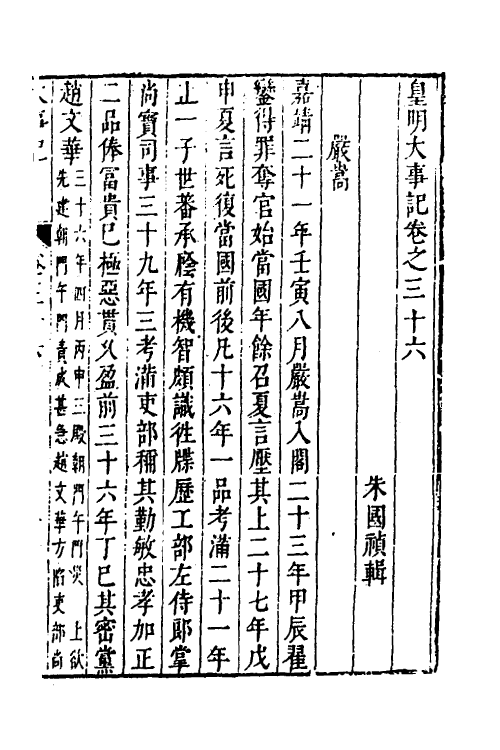 皇明大事記卷之三十六
朱國禎輯
嚴嵩
嘉靖二十一年壬寅八月嚴嵩入閣二十三年甲辰翟
鑾得罪奪官始當國年餘召夏言壓其上二十七年戊
申夏言死復當國前後凡十六年一品考滿二十一年
止一子世蕃承廕有機智頗識徃牒歷工部左侍郎掌
尚寶司事三十九年三考滿吏部稱其勤敏忠孝加正
二品俸富貴已極惡貫久盈前三十六年丁巳其密黨
趙文華三十六年四月丙申三殿朝門午門災 上欲
先建朝門午門責成甚急趙文華方陷吏部尚